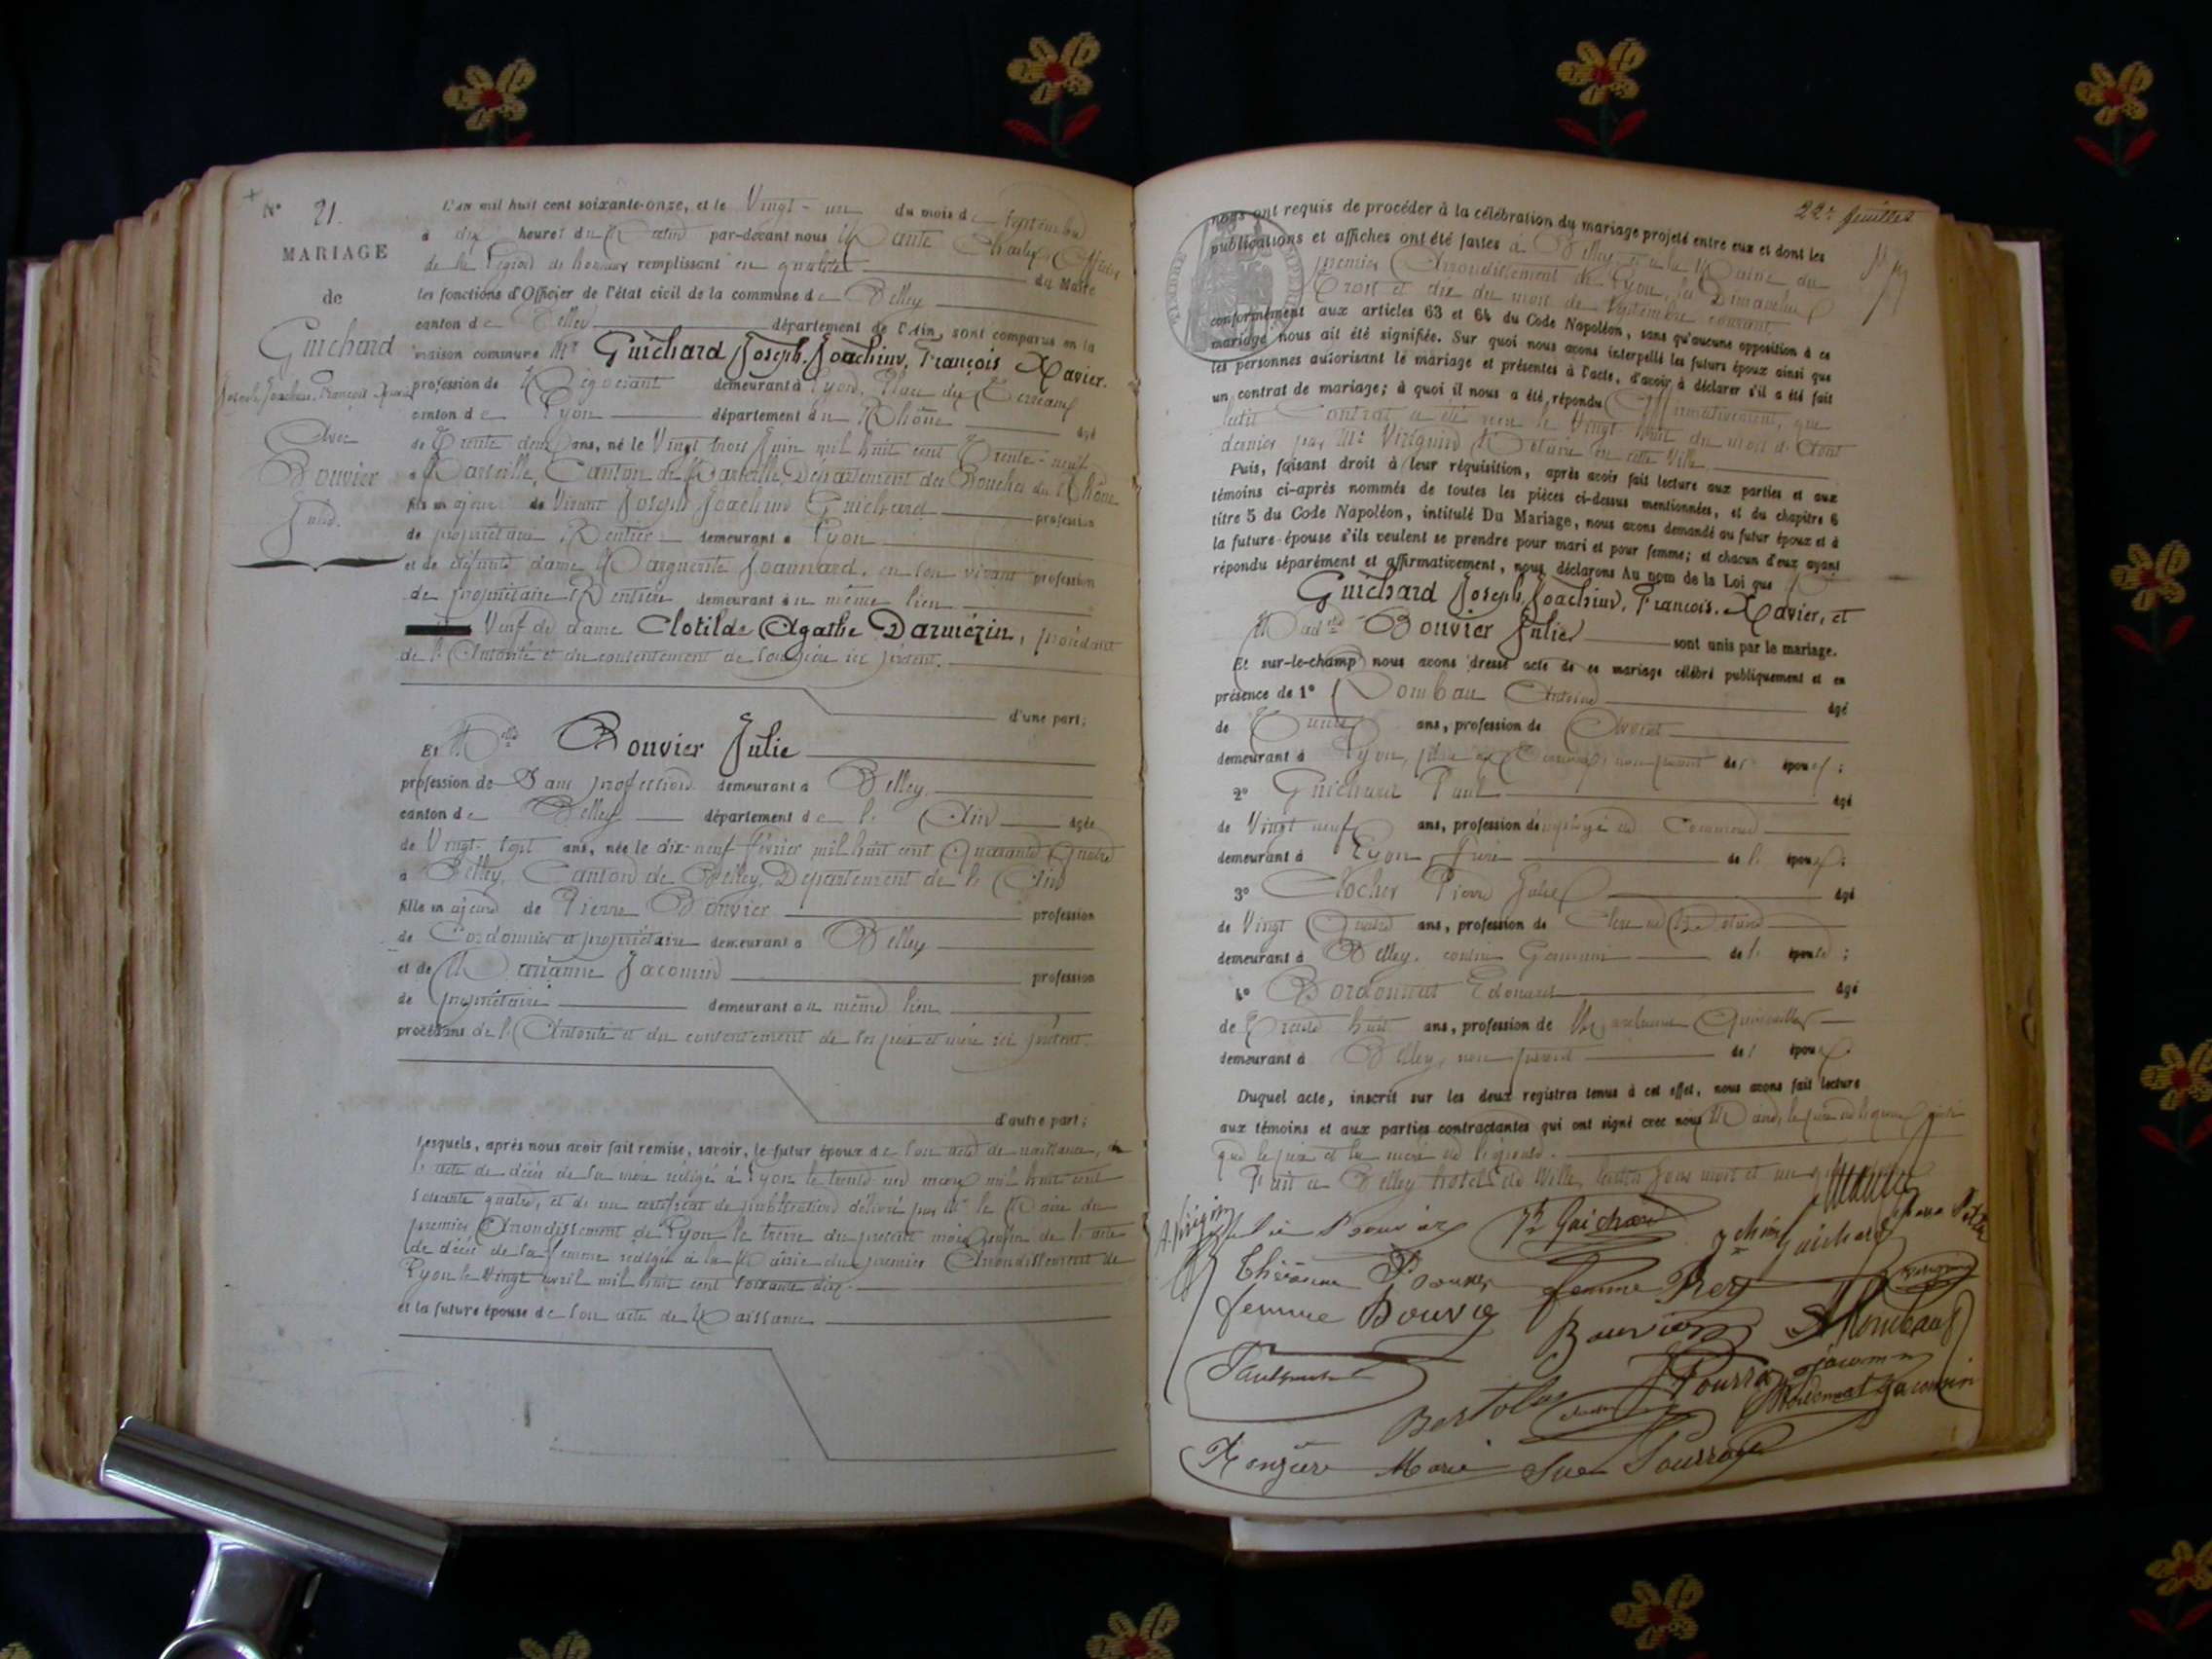 N° 21.
MARIAGE
de
Guichard
Joseph, Joachim, François Xavier
Avec
Bouvier
Julie.
L'an mil huit cent soixante-onze, et le Vingt-un du mois de Septembre
à dix heures du Matin par-devant nous Charles, Officier
de la Légion de honneur remplissant en qualité du Maire
les fonctions d'Officier de l'état civil de la commune de Belley
canton de Belley département de l'Ain, sont comparus en la
maison commune Mr Guichard Joseph, Joachim, François Xavier.
profession de Négociant demeurant à Lyon, Place des Terreaux
canton de Lyon département du Rhône âgé
de Trente deux ans, né le Vingt trois Juin mil huit cent Trente-neuf
à Marseille, Canton de Marseille, Département des Bouches du Rhône
fils majeur de Vivant Joseph Joachim Guichard profession
de propriétaire Rentier demeurant à Lyon
et de défunte dame Marguerite Joannard, en son vivant profession
de propriétaire Rentière demeurant au même lieu
Veuf de dame Clotilde Agathe Darmézin, procédant
de l'Autorité et du consentement de son père ici présent.
d'une part;
Et Melle Bouvier Julie
profession de Sans profession demeurant à Belley
canton de Belley département de l'Ain âgée
de Vingt-sept ans, née le dix-neuf février mil huit cent Quarante Quatre
à Belley, Canton de Belley, Département de l'Ain
fille majeure de Pierre Bouvier profession
de Cordonnier et propriétaire demeurant à Belley
et de Marianne Jacomin profession
de propriétaire demeurant au même lieu
procédant de l'Autorité et du consentement de ses père et mère ici présent.
d'autre part;
Lesquels, après nous avoir fait remise, savoir, le futur époux de son acte de naissance, de
l'acte de décès de sa mère rédigé à Lyon le trente un mars mil huit cent
soixante quatre, et de un certificat de publication délivré par Mr le Maire du
premier Arrondissement de Lyon le treize du présent mois, enfin de l'acte
de décès de sa femme rédigé à la Mairie du premier Arrondissement de
Lyon le Vingt avril mil huit cent soixante dix.
et la future épouse de son acte de Naissance
22e feuillet
nous ont requis de procéder à la célébration du mariage projeté entre eux et dont les
publications et affiches ont été faites à Belley et à la Mairie du
premier Arrondissement de Lyon, les Dimanches
Trois et dix du mois de Septembre courant,
conformément aux articles 63 et 64 du Code Napoléon, sans qu'aucune opposition à ce
mariage nous ait été signifiée. Sur quoi nous avons interpellé les futurs époux ainsi que
les personnes autorisant le mariage et présentes à l'acte, d'avoir à déclarer s'il a été fait
un contrat de mariage; à quoi il nous a été répondu Affirmativement, que
ledit Contrat a été reçu le Vingt huit du mois d'Août
dernier par Me Viriginid Notaire en cette Ville.
Puis, faisant droit à leur réquisition, après avoir fait lecture aux parties et aux
témoins ci-après nommés de toutes les pièces ci-dessus mentionnées, et du chapitre 6
titre 5 du Code Napoléon, intitulé Du Mariage, nous avons demandé au futur époux et à
la future épouse s'ils veulent se prendre pour mari et pour femme; et chacun d'eux ayant
répondu séparément et affirmativement, nous déclarons Au nom de la Loi que
Guichard Joseph, Joachim, François, Xavier, et
Madelle Bouvier Julie sont unis par le mariage.
Et sur-le-champ nous avons dressé acte de ce mariage célébré publiquement et en
présence de 1° Rombau Antoine âgé
de Trente ans, profession de Avocat
demeurant à Lyon, place des Terreaux, non parent des époux;
2° Guichard Paul âgé
de Vingt neuf ans, profession d'employé de Commerce
demeurant à Lyon, frère de l'époux;
3° Clocher Pierre Jules âgé
de Vingt Quatre ans, profession de Clerc de Notaire
demeurant à Belley, cousin Germain de l'épouse;
4° Bordonnat Edouard âgé
de Trente huit ans, profession de Marchand Quincailler
demeurant à Belley, non parent de l'époux.
Duquel acte, inscrit sur les deux registres tenus à cet effet, nous avons fait lecture
aux témoins et aux parties contractantes qui ont signé avec nous
que le père et la mère de l'épouse.
Fait à Belley hôtel de Ville, lesdits jour mois et an
Julie Bouvier
Guichard
Guichard
femme Bouvier
femme Rey
Bouvier
A Rombau
Jacomin
Bordonnat Jacomin
Marie